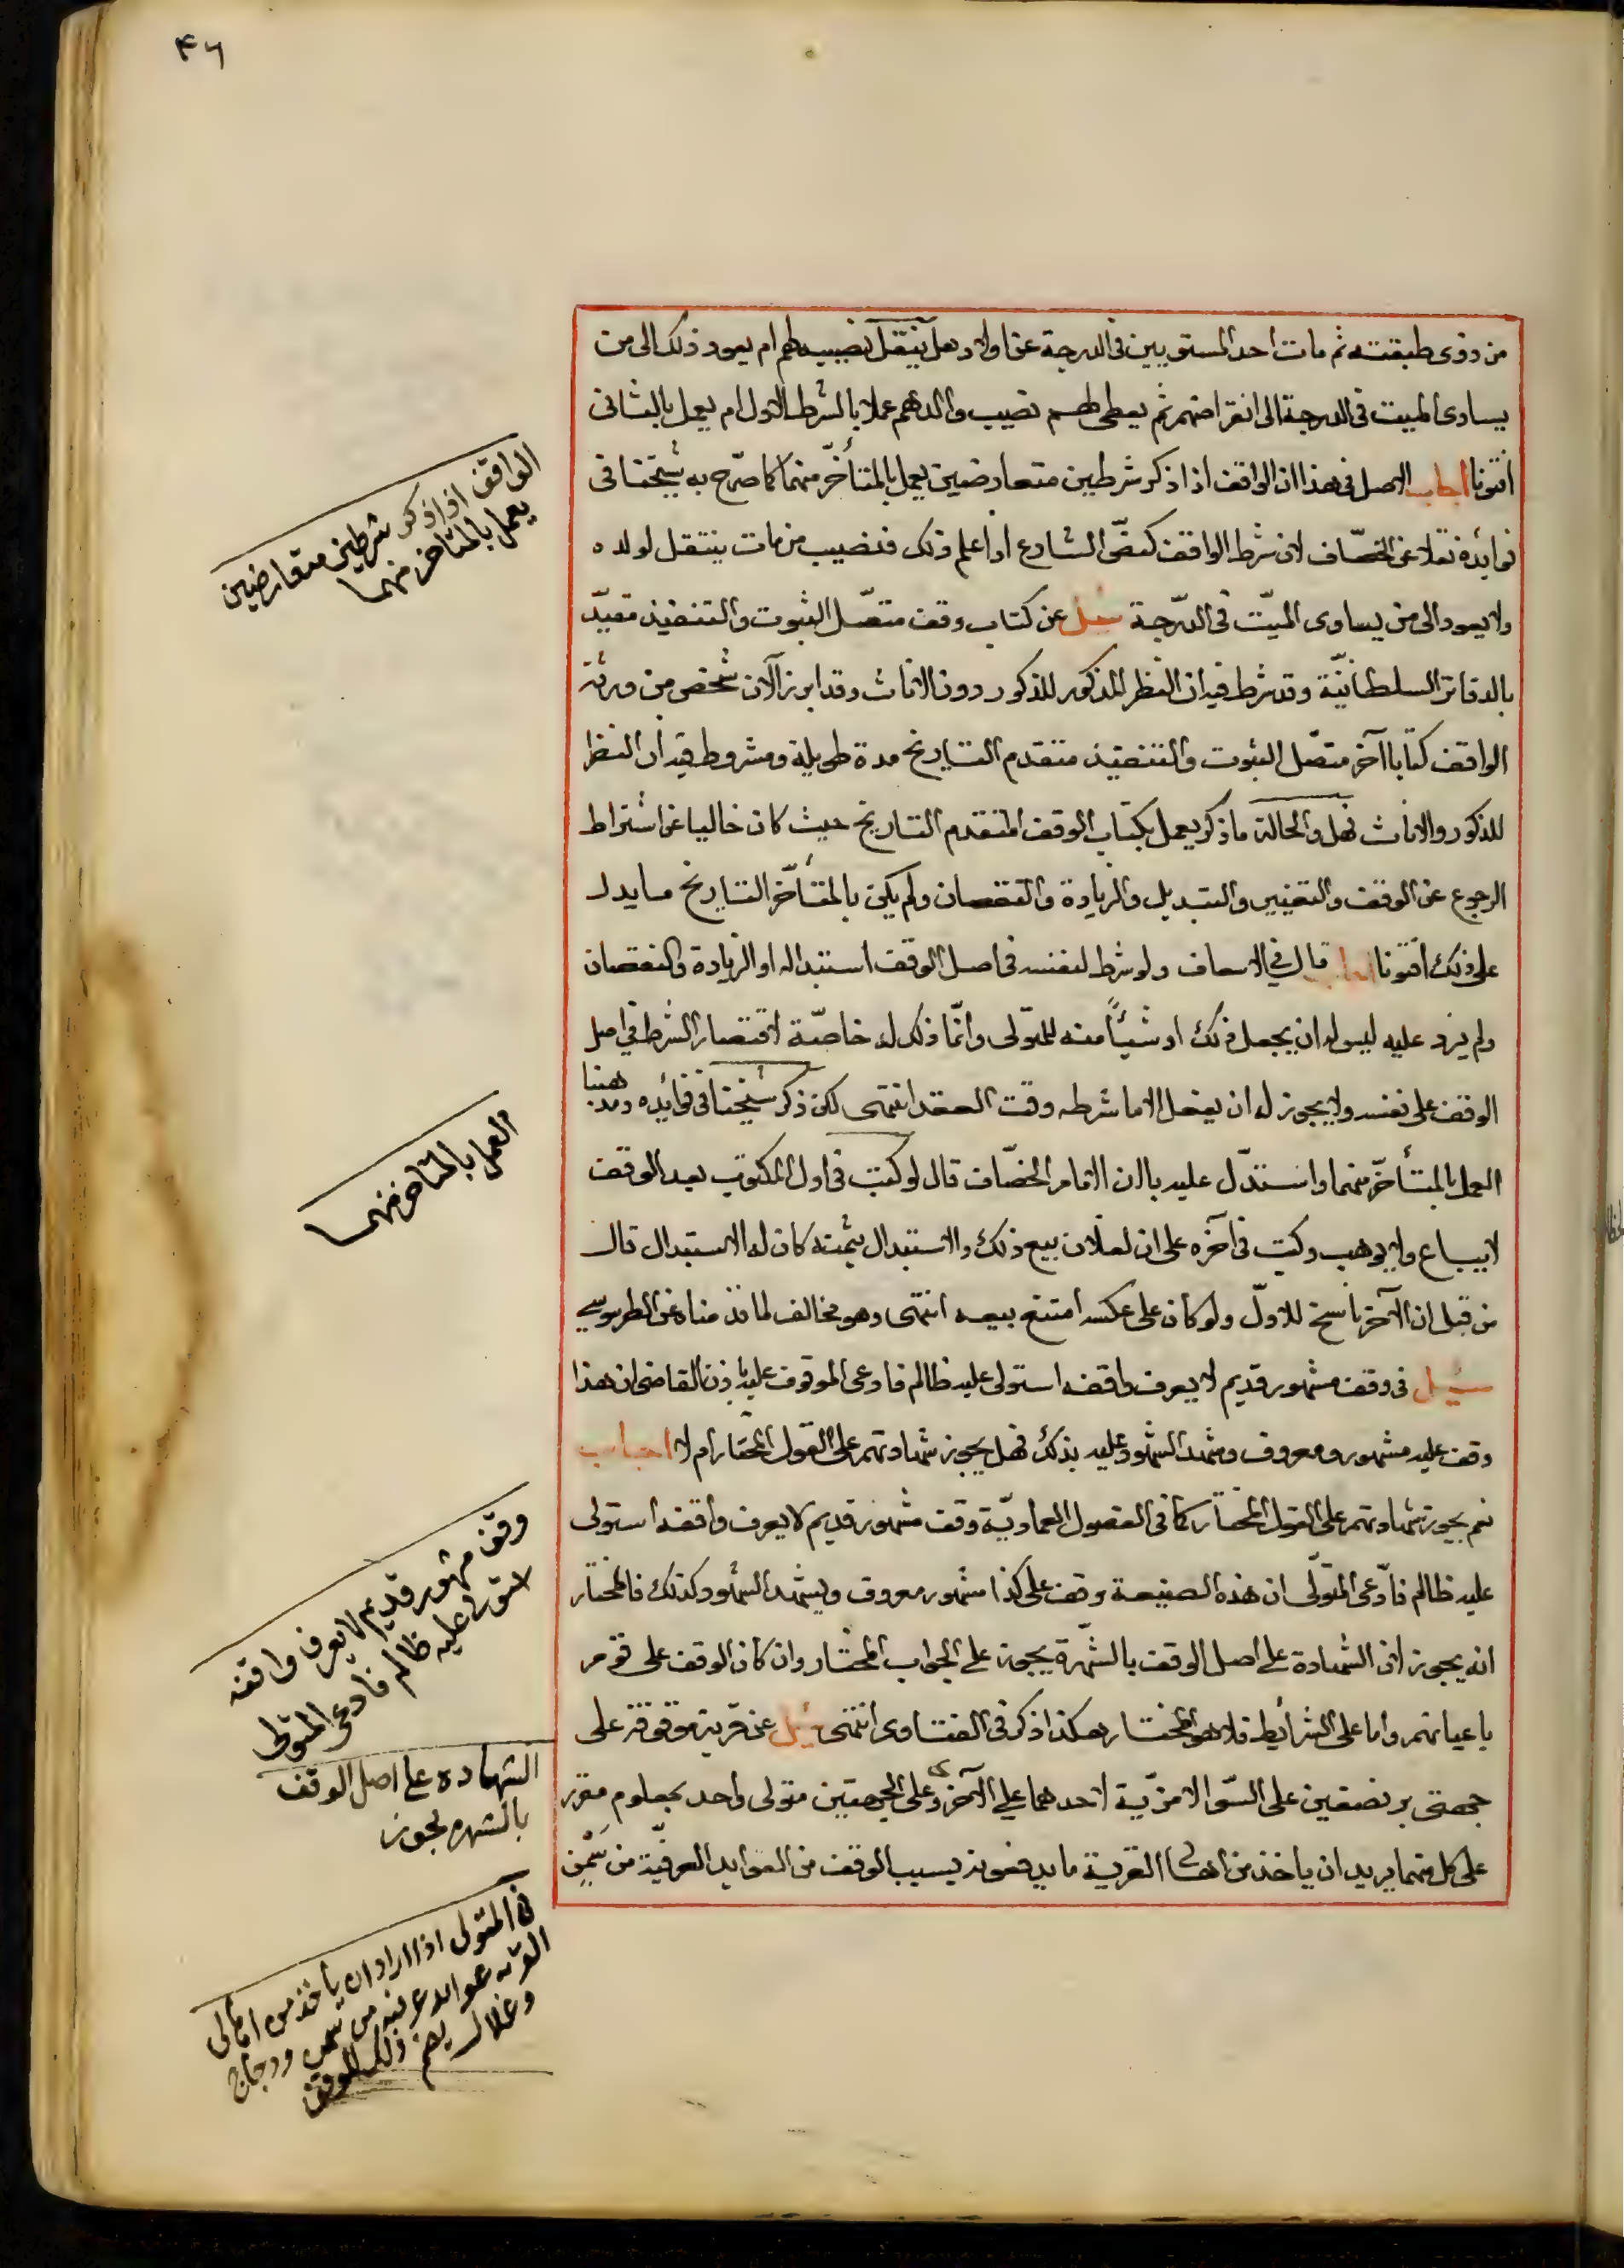 ٤٦
من ذوى طبقته ثم مات احد المستويين فى الدرجة عن اولاد هل ينتقل نصيبه لهم ام يعود ذلك الى من
يساوى الميت فى الدرجة الى انقراضهم ثم يعطى لهم نصيب والدهم عملا بالشرط الاول ام يعمل بالثانى
افتونا اجاب الاصل فى هذا ان الواقف اذا ذكر شرطين متعارضين يعمل بالمتأخّر منهما كما صرّح به شيخنا فى
فوائده نقلا عن الخصّاف لان شرط الواقف كنصّ الشارع اذا علم ذلك فنصيب من مات ينتقل لولده
ولا يعود الى من يساوى الميّت فى الدّرجة سئل عن كتاب وقف متصّل الثبوت والتنفيذ مقيّد
بالدفاتر السلطانيّة وقد شرط فيه ان النظر المذكور للذكور دون الاناث وقد ابرز الآن شخص من ورثة
الواقف كتابا آخر متصّل الثبوت والتنفيذ متقدم التاريخ مدة طويلة ومشروط فيه ان النظر
للذكور والاناث فهل والحالة ما ذكر يعمل بكتاب الوقف المتقدم التاريخ حيث كان خاليا عن اشتراط
الرجوع عن الوقف والتغيير والتبديل والزيادة والنقصان ولم يكن بالمتأخّر التاريخ ما يدل
على ذلك افتونا اجاب قال فى الاسعاف ولو شرط لنفسه فى اصل الوقف استبداله او الزيادة والنقصان
ولم يزد عليه ليس له ان يجعل ذلك او شيئاً منه للمتولى وانّما ذلك له خاصّة لاقتصار الشرط فى اصل
الوقف على نفسه ولا يجوز له ان يفعل الا ما شرطه وقت العقد انتهى لكن ذكر شيخنا فى فوائده ومذهبنا
العمل بالمتأخّر منهما واستدّل عليه بان الامام الخصّاف قال لو كتب فى اول المكتوب بعد الوقف
لا يباع ولا يوهب وكتب فى آخره على ان لفلان بيع ذلك والاستبدال بثمنه كان له الاستبدال قال
من قبل ان الآخر ناسخ للاوّل ولو كان على عكسه امتنع بيعه انتهى وهو مخالف لما قدمناه عن الطرسوسى
سئيل فى وقف مشهور قديم لا يعرف واقفه استولى عليه ظالم فادعى الموقوف عليه باذن القاضى ان هذا
وقف عليه مشهور ومعروف وشهد الشهود عليه بذلك فهل يجوز شهادتهم على القول المختار ام لا اجاب
نعم يجوز شهادتهم على القول المختار كما فى الفصول العماديّة وقف مشهور قديم لا يعرف واقفه استولى
عليه ظالم فادّعى المتولّى ان هذه الضيعة وقف على كذا مشهور معروف ويشهد الشهود كذلك فالمختار
انه يجوز لان الشهادة على اصل الوقف بالشهرة يجوز على الجواب المختار وان كان الوقف على قوم
باعيانهم واما على الشرائط فلا هو المختار هكذا ذكر فى الفتاوى انتهى سئل عن قرية موقوفة على
جهتى بر نصفين على السّوا لا مزيّة لاحدهما على الآخرى وعلى الجهتين متولى واحد بمعلوم مقرر
على كل منهما يريد ان ياخذ من اهالى القرية ما يدفعونه بسبب الوقف من العوايد العرفيّة من سمن
الواقف اذا ذكر شرطين متعارضين
يعمل بالمتاخر منهما
العمل بالمتاخر منهما
وقف مشهور قديم لا يعرف واقفه
استولى عليه ظالم فادعى المتولى
الشهاده على اصل الوقف
بالشهره يجوز
فى المتولى اذا اراد ان يأخذ من اهالى
القريه عوايد عرفيه من سمن ودجاج
وغلال يضم ذلك للوقف